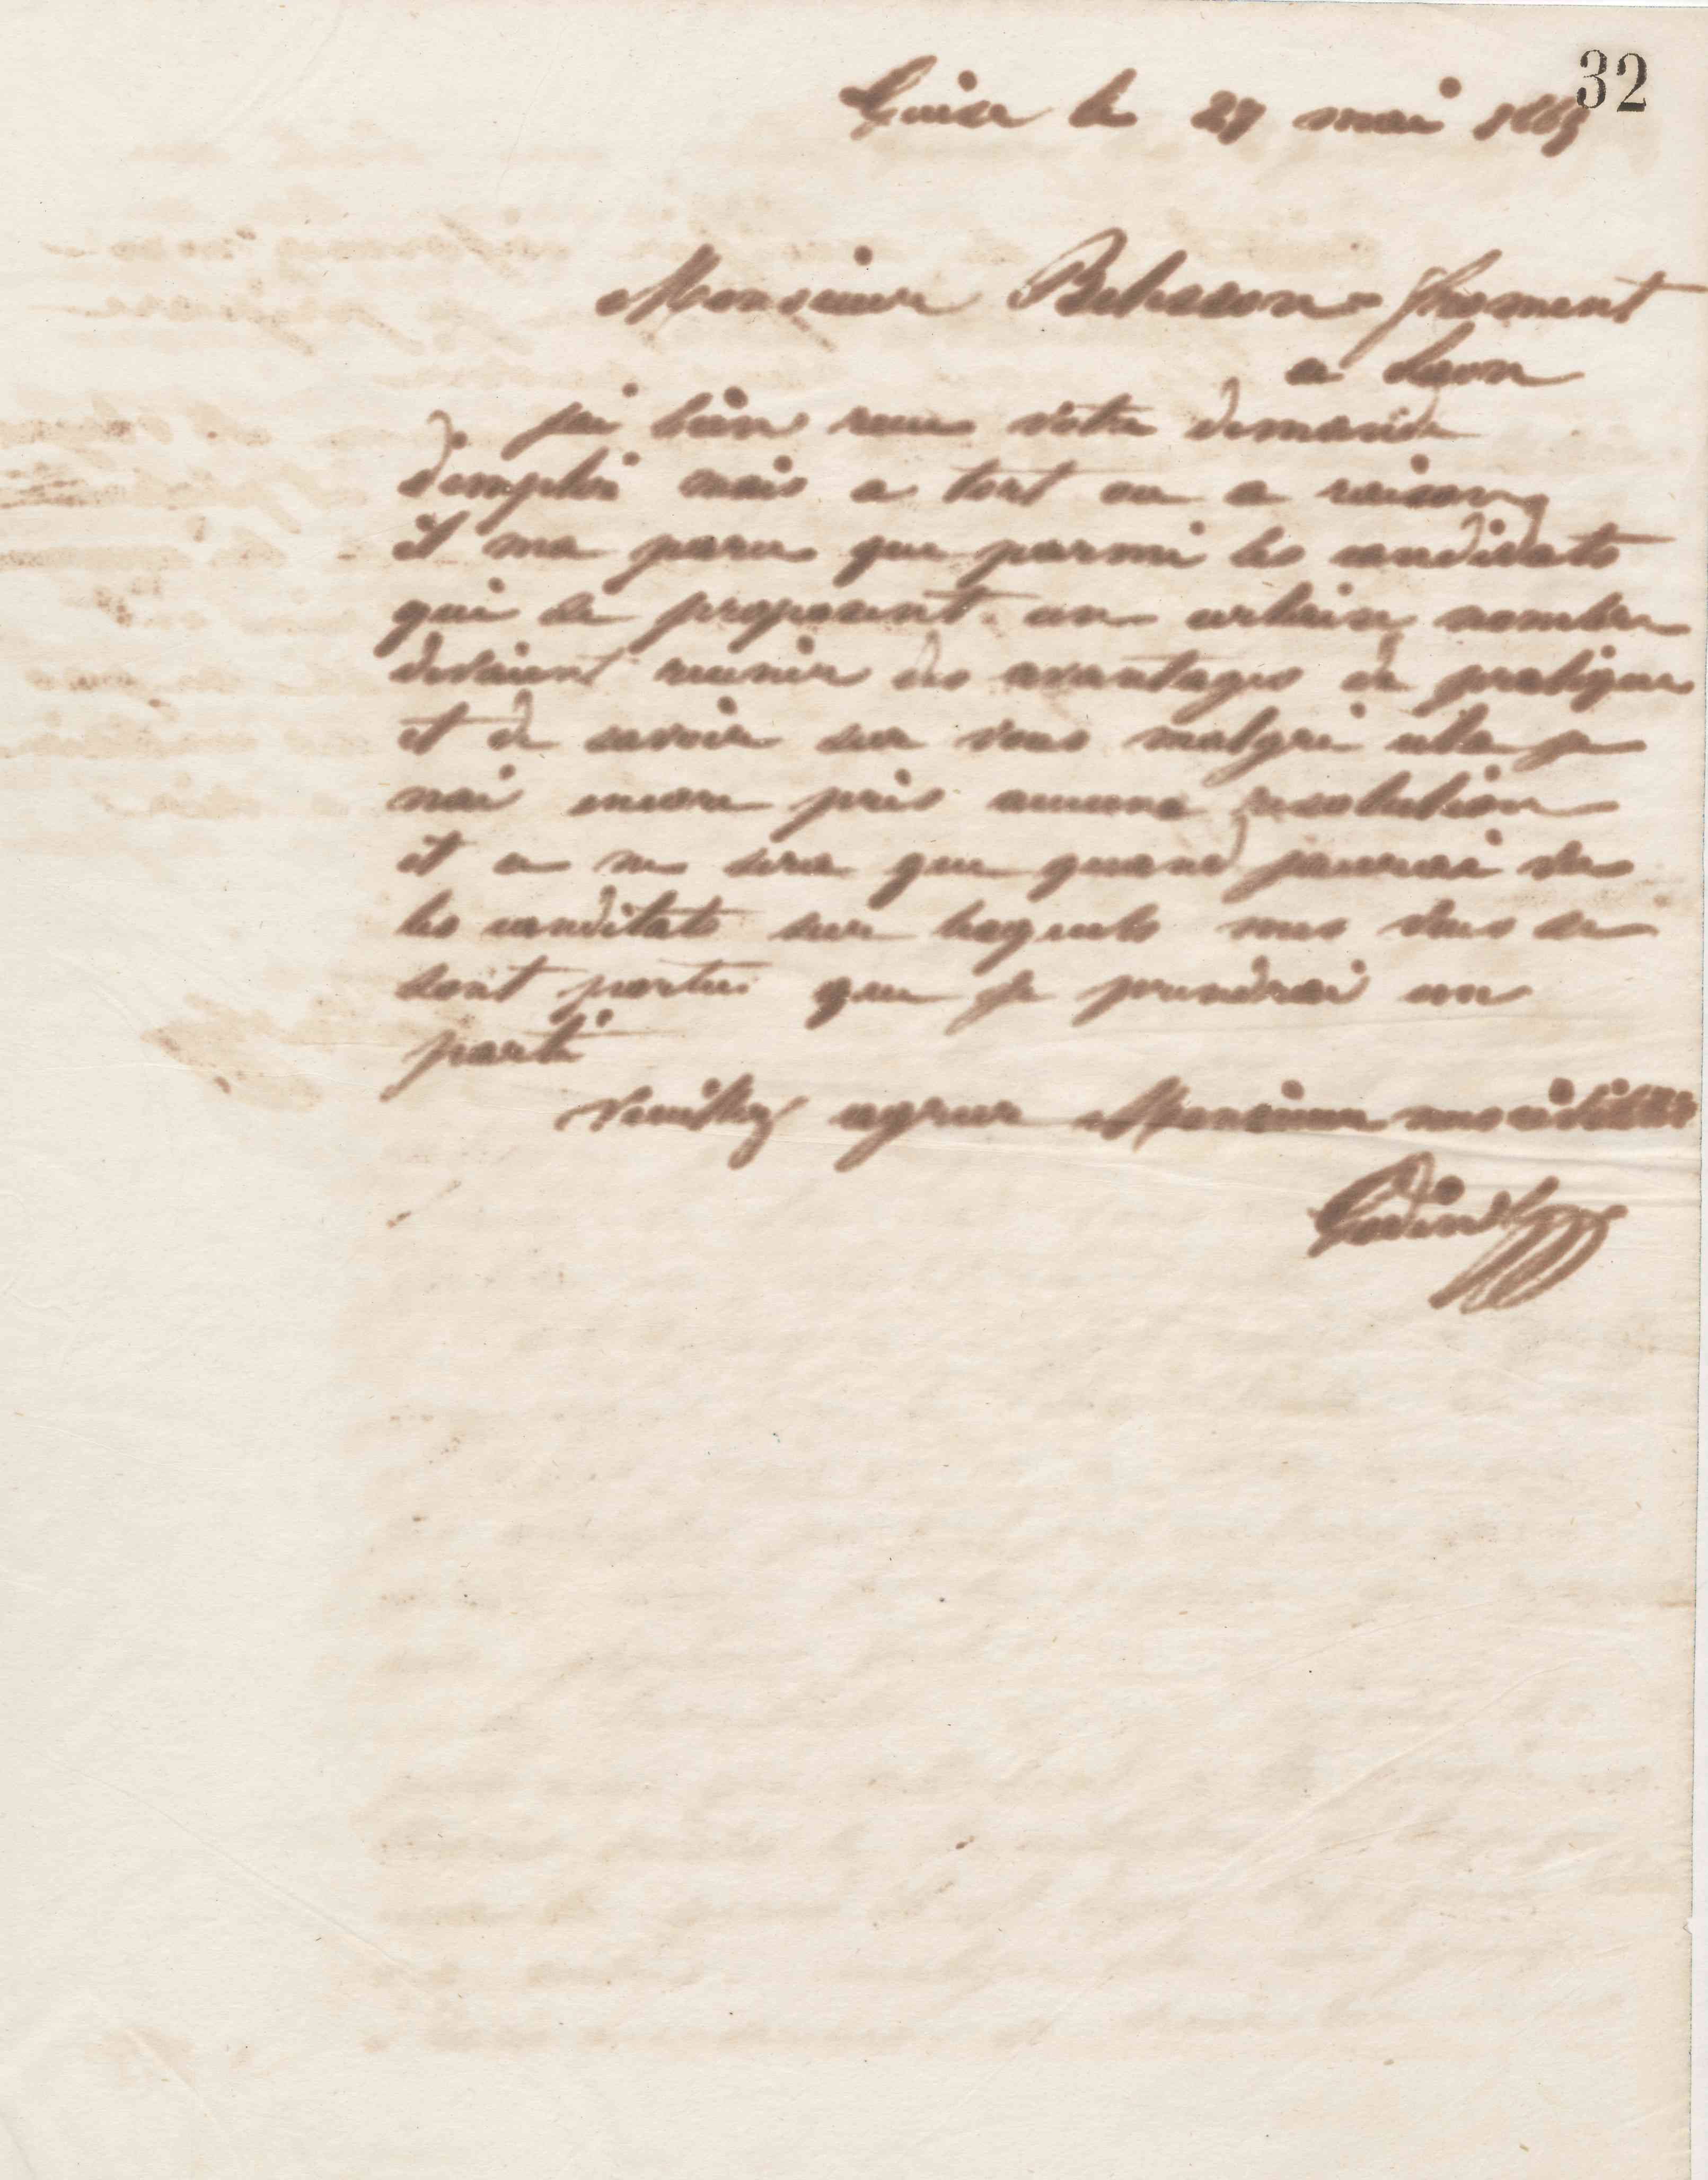 32
Guise le 27 mai 1865
Monsieur froment
a Laon
jai bien recu votre demande
demploi mais a tort ou a raison
il ma paru que parmi les candidats
qui se proposent un certain nombre
devaient reunir des avantages de pratique
et de savoir sur vous malgré cela je
nai encore pris aucune resolution
et ce ne sera que quand jaurai vu
les canditats sur lesquels mes vues se
sont portees que je prendrai un
parti
Veuillez agreer Monsieur mes civilités
Godin